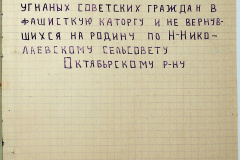 угнаных советских граждан в
фашисткую каторгу и не вернув-
шихся на родину по Н-Нико-
лаевскому сельсовету
Октябрьскому р-ну